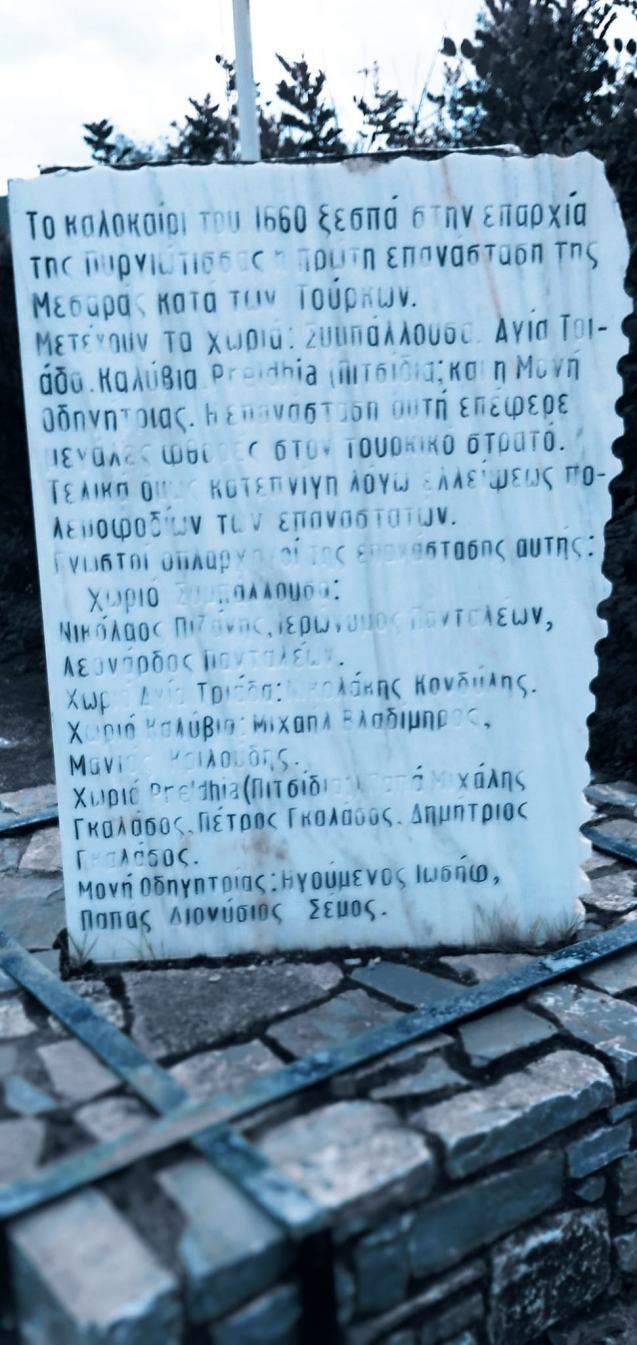 Το καλοκαίρι του 1660 ξεσπά στην επαρχία
της Πυργιώτισσας η πρώτη επανάσταση της
Μεσαράς κατά των Τούρκων.
Μετέχουν τα χωριά: Συμπάλλουσα. Αγία Τρι-
άδα. Καλύβια Preldhia (Πιτσίδια; και η Μονή
Οδηγήτριας. Η επανάσταση αυτή επέφερε
μεγάλες φθορές στον τουρκικό στρατό.
Τελικά όμως κατεπνίγη λόγω ελλείψεως πο-
λεμοφοδίων των επαναστατών.
Γνωστοί οπλαρχηγοί της επανάστασης αυτής:
Χωριό Συμπάλλουσα:
Νικόλαος Πιζάνης, Ιερώνυμος Πανταλέων,
Λεονάρδος Πανταλέων.
Χωριό Αγία Τριάδα: Νικολάκης Κονδύλης.
Χωριό Καλύβια: Μιχαήλ Βλαδίμηρος,
Μανιός
Χωριό Preldhia (Πιτσίδια) Παπά Μιχάλης
Γκαλάσος. Πέτρος Γκαλάσος. Δημητριος
Γκαλάσος.
Μονή Οδηγητρίας: Ηγούμενος Ιωσήφ,
Παπας Διονύσιος Σεμος.